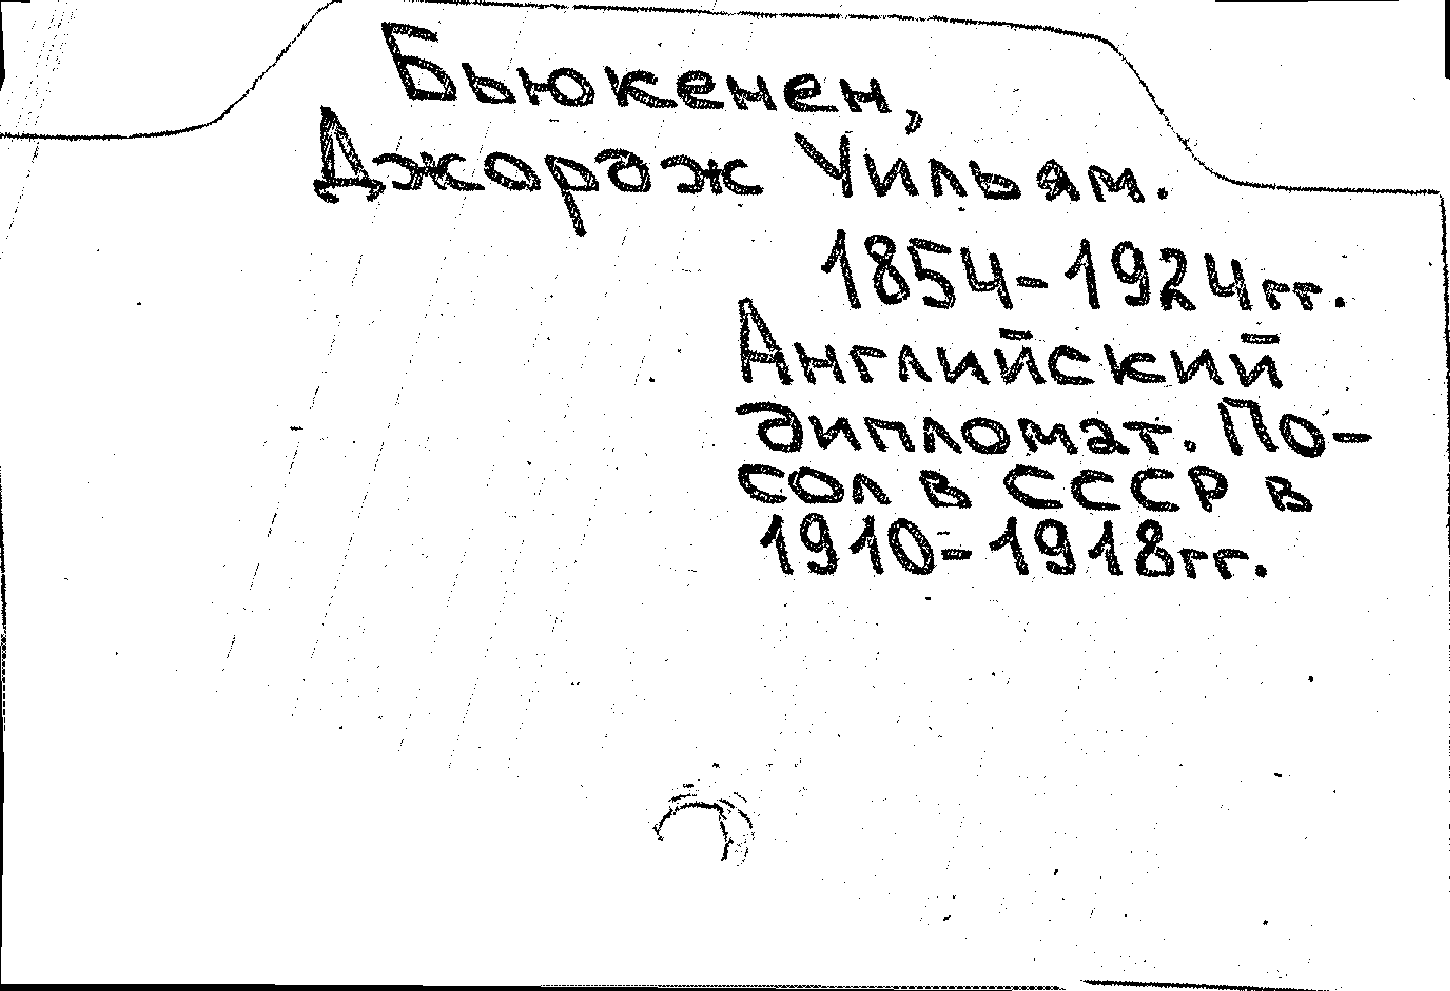 Бьюкенен,
Джордж Уильям.
1854-1924гг.
Английский
дипломат. По-
сол в СССР в
1910-1918гг.